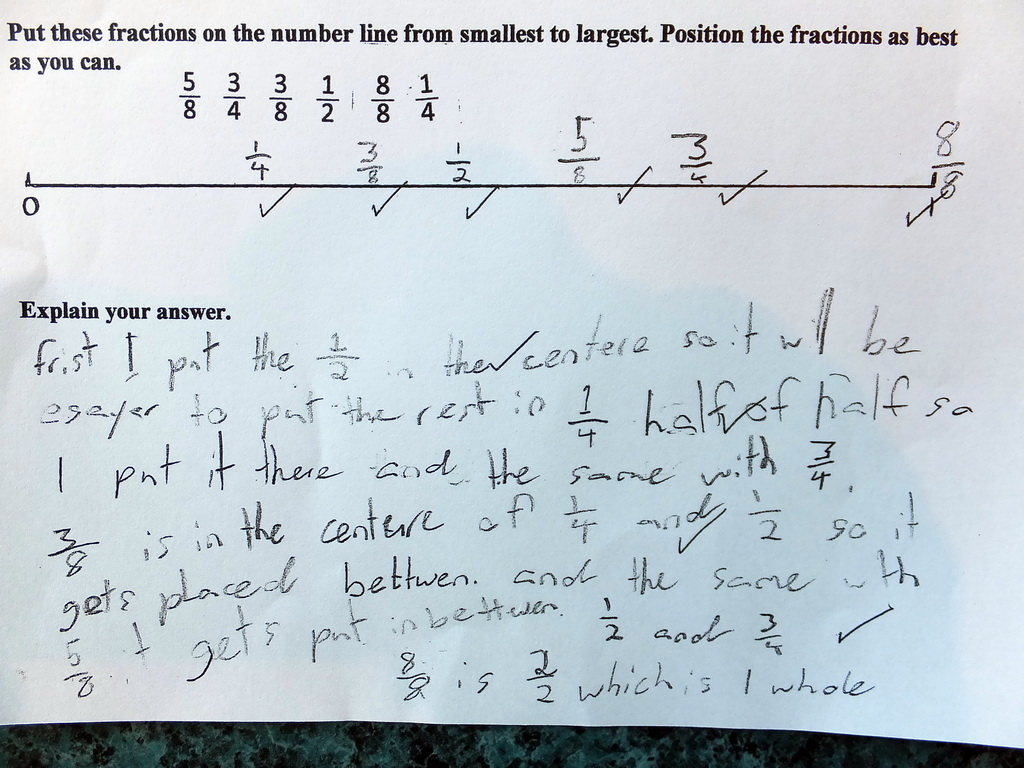 Put these fractions on the number line from smallest to largest. Position the fractions as best
as you can.
5/8 3/4 3/8 1/2 8/8 1/4
1/4 3/8 1/2 5/8 3/4 8/8
0
Explain your answer.
frist I put the 1/2 in the centere so it will be
esayer to put the rest in 1/4 half of half so
I put it there and the same with 3/4.
3/8 is in the centere of 1/4 and 1/2 so it
gets placed bettwen. and the same with
5/8 it gets put inbettwen 1/2 and 3/4
8/8 is 2/2 which is 1 whole